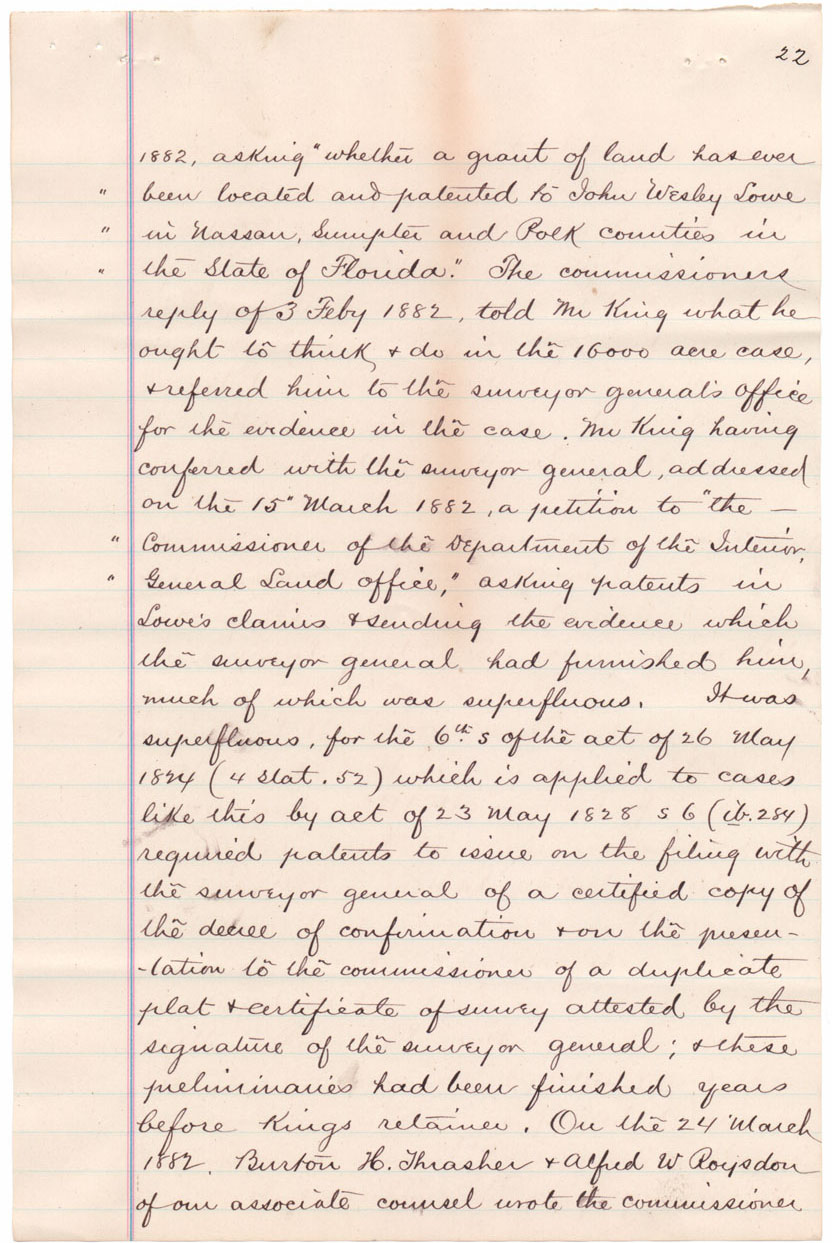 22
1882, asking "whether a grant of land has ever
" been located and patented to John Wesley Lowe
" in Nassau, Sumpter and Polk counties in
" the State of Florida." The commissioners
reply of 3 Feby 1882, told Mr King what he
ought to think, & do in the 16000 acre case,
& referred him to the surveyor general's office
for the evidence in the case. Mr King having
conferred with the surveyor general, addressed
on the 15" March 1882, a petition to "the —
" Commissioner of the Department of the Interior,
" General Land office," asking patents in
Lowe's claims & sending the evidence which
the surveyor general had furnished him,
much of which was superfluous. It was
superfluous, for the 6th s of the act of 26 May
1824 (4 Stat. 52) which is applied to cases
like this by act of 23 May 1828 s 6 (ib. 284)
required patents to issue on the filing with
the surveyor general of a certified copy of
the decree of confirmation & on the presen-
-tation to the commissioner of a duplicate
plat & certificate of survey attested by the
signature of the surveyor general; & these
preliminaries had been finished years
before Kings retainer. On the 24 March
1882. Burton H. Thrasher & Alfred W Roysdon
of our associate counsel wrote the commissioner